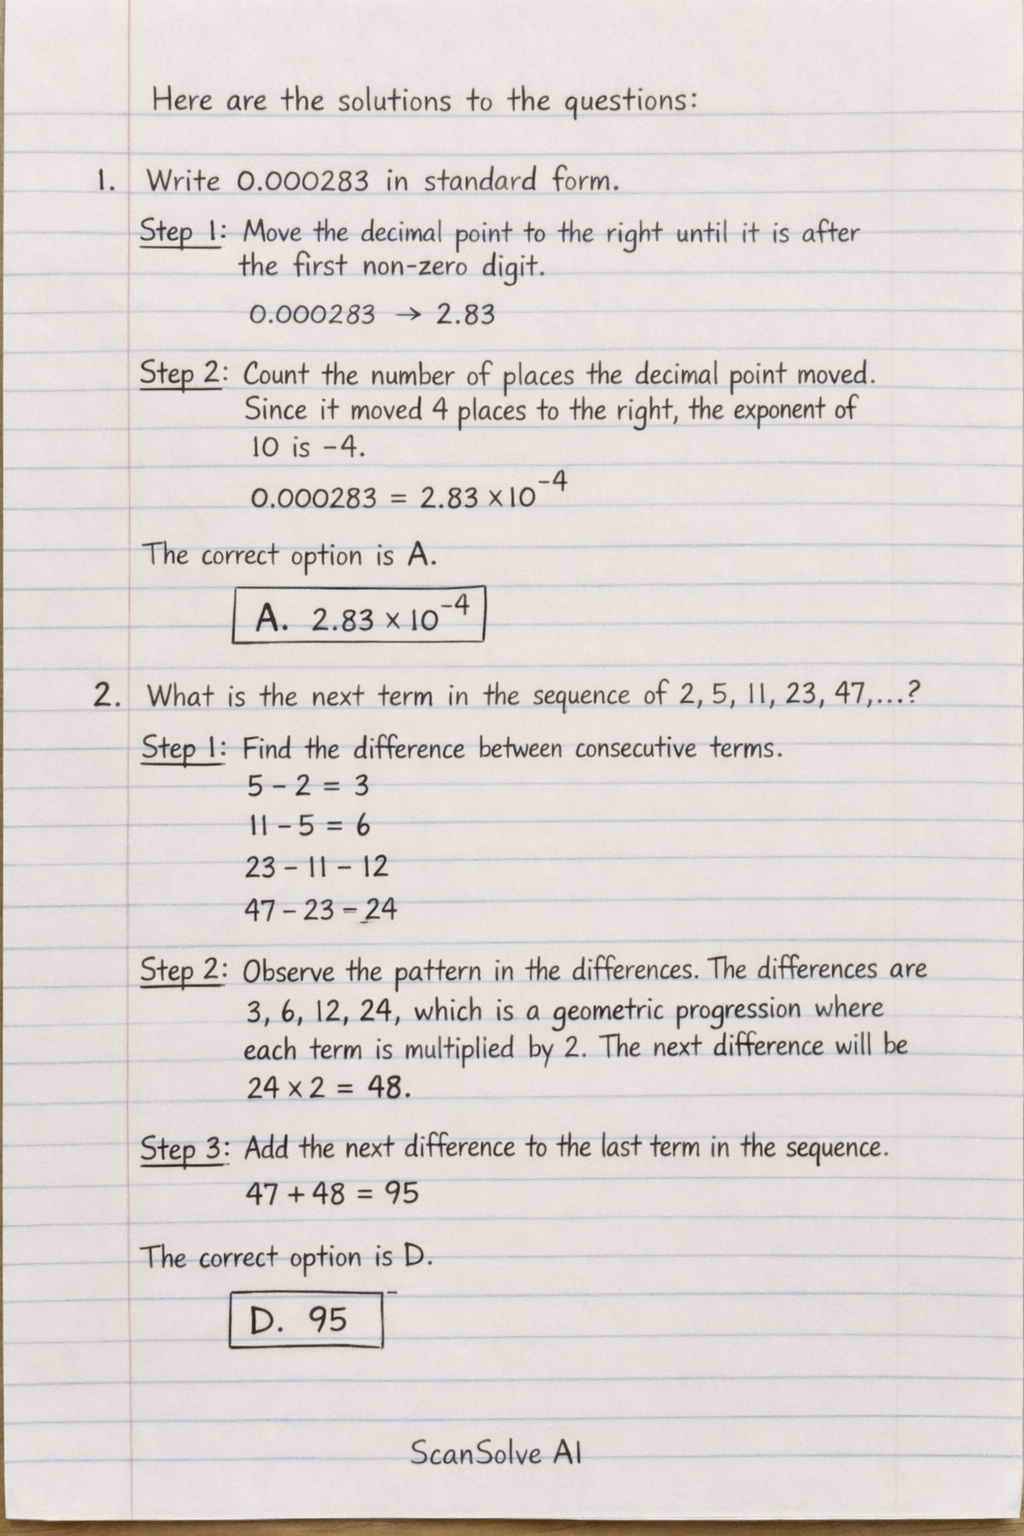 Here are the solutions to the questions:
1. Write 0.000283 in standard form.
Step 1: Move the decimal point to the right until it is after
the first non-zero digit.
0.000283 → 2.83
Step 2: Count the number of places the decimal point moved.
Since it moved 4 places to the right, the exponent of
10 is −4.
0.000283 = 2.83 ×10⁻⁴
The correct option is A.
A. 2.83 × 10⁻⁴
2. What is the next term in the sequence of 2, 5, 11, 23, 47,...?
Step 1: Find the difference between consecutive terms.
5 − 2 = 3
11 − 5 = 6
23 − 11 − 12
47 − 23 − 24
Step 2: Observe the pattern in the differences. The differences are
3, 6, 12, 24, which is a geometric progression where
each term is multiplied by 2. The next difference will be
24 × 2 = 48.
Step 3: Add the next difference to the last term in the sequence.
47 + 48 = 95
The correct option is D.
D. 95
ScanSolve AI